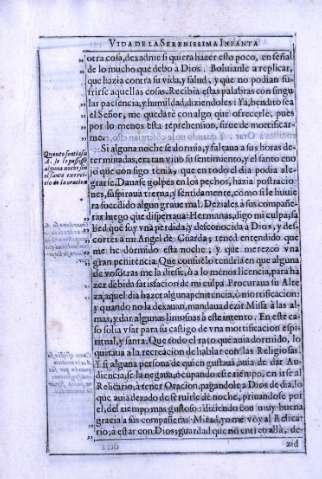 VIDA DE LA SERENISSIMA INFANTA
otra cosa, dexadme si quiera hazer esto poco, en señal
de lo mucho que debo a Dios. Boluianle a replicar,
que hazia contra su vida, y salud, y que no podian su-
frirse aquellas cosas. Recibia estas palabras con singu
lar paciencia, y humildad, diziendoles: Ya, bendito sea
el Señor, me quedarè con algo que ofrecerle, pues
por lo menos esta reprehension, sirve de mortificar-
me.
Quanto sentia su
A. le
alguna noche sin
el santo exerci-
cio de la oracion
Si alguna noche se dormia, y faltaua a sus horas de-
terminadas, era tan viuo su sentimiento, y el santo eno
jo que consigo tenia, que en todo el dia podia ale-
grarse. Dauase golpes en los pechos, hazia postracio-
nes, suspiraua tierna, y sentidamente, como si le huuie
ra sucedido algun graue mal. Deziales à sus compañe-
ras luego que dispertaua: Hermanas, digo mi culpa; sa
bed que soy vna perdida, y desconocida a Dios, y des-
cortès a mi Angel de Guarda; tened entendido que
me he dormido esta noche; y que merezco vna
gran penitencia. Que consuelo tendria en que alguna
de vosotras me la diesse, ò a lo menos licencia, para ha
zer debida satisfacion de mi culpa. Procuraua su Alte
za, aquel dia hazer alguna penitencia, ò mortificacion:
y quando no la dexauan, mandaua dezir Missa à las al-
mas, y dar algunas limosnas à este intento. En este ca-
so solia vsar para su castigo de vna mortificacion espi-
ritual, y santa. Que todo el rato que auia dormido, lo
quitaua a la recreacion de hablar con las Religiosas.
Y si alguna persona de quien gustaua, auia de dar Au-
diencia, se la negaua, ocupando este tiempo, en irse al
Relicario, à tener Oracion, pagandole à Dios de dia, lo
que auia dexado de seruirle de noche, priuandose por
el, del tiempo mas gustoso: diziendo con muy buena
gracia à sus compañeras: Mirad, yo me voy al Relica-
rio, à estar con Dios; guardad que no entre allà, de